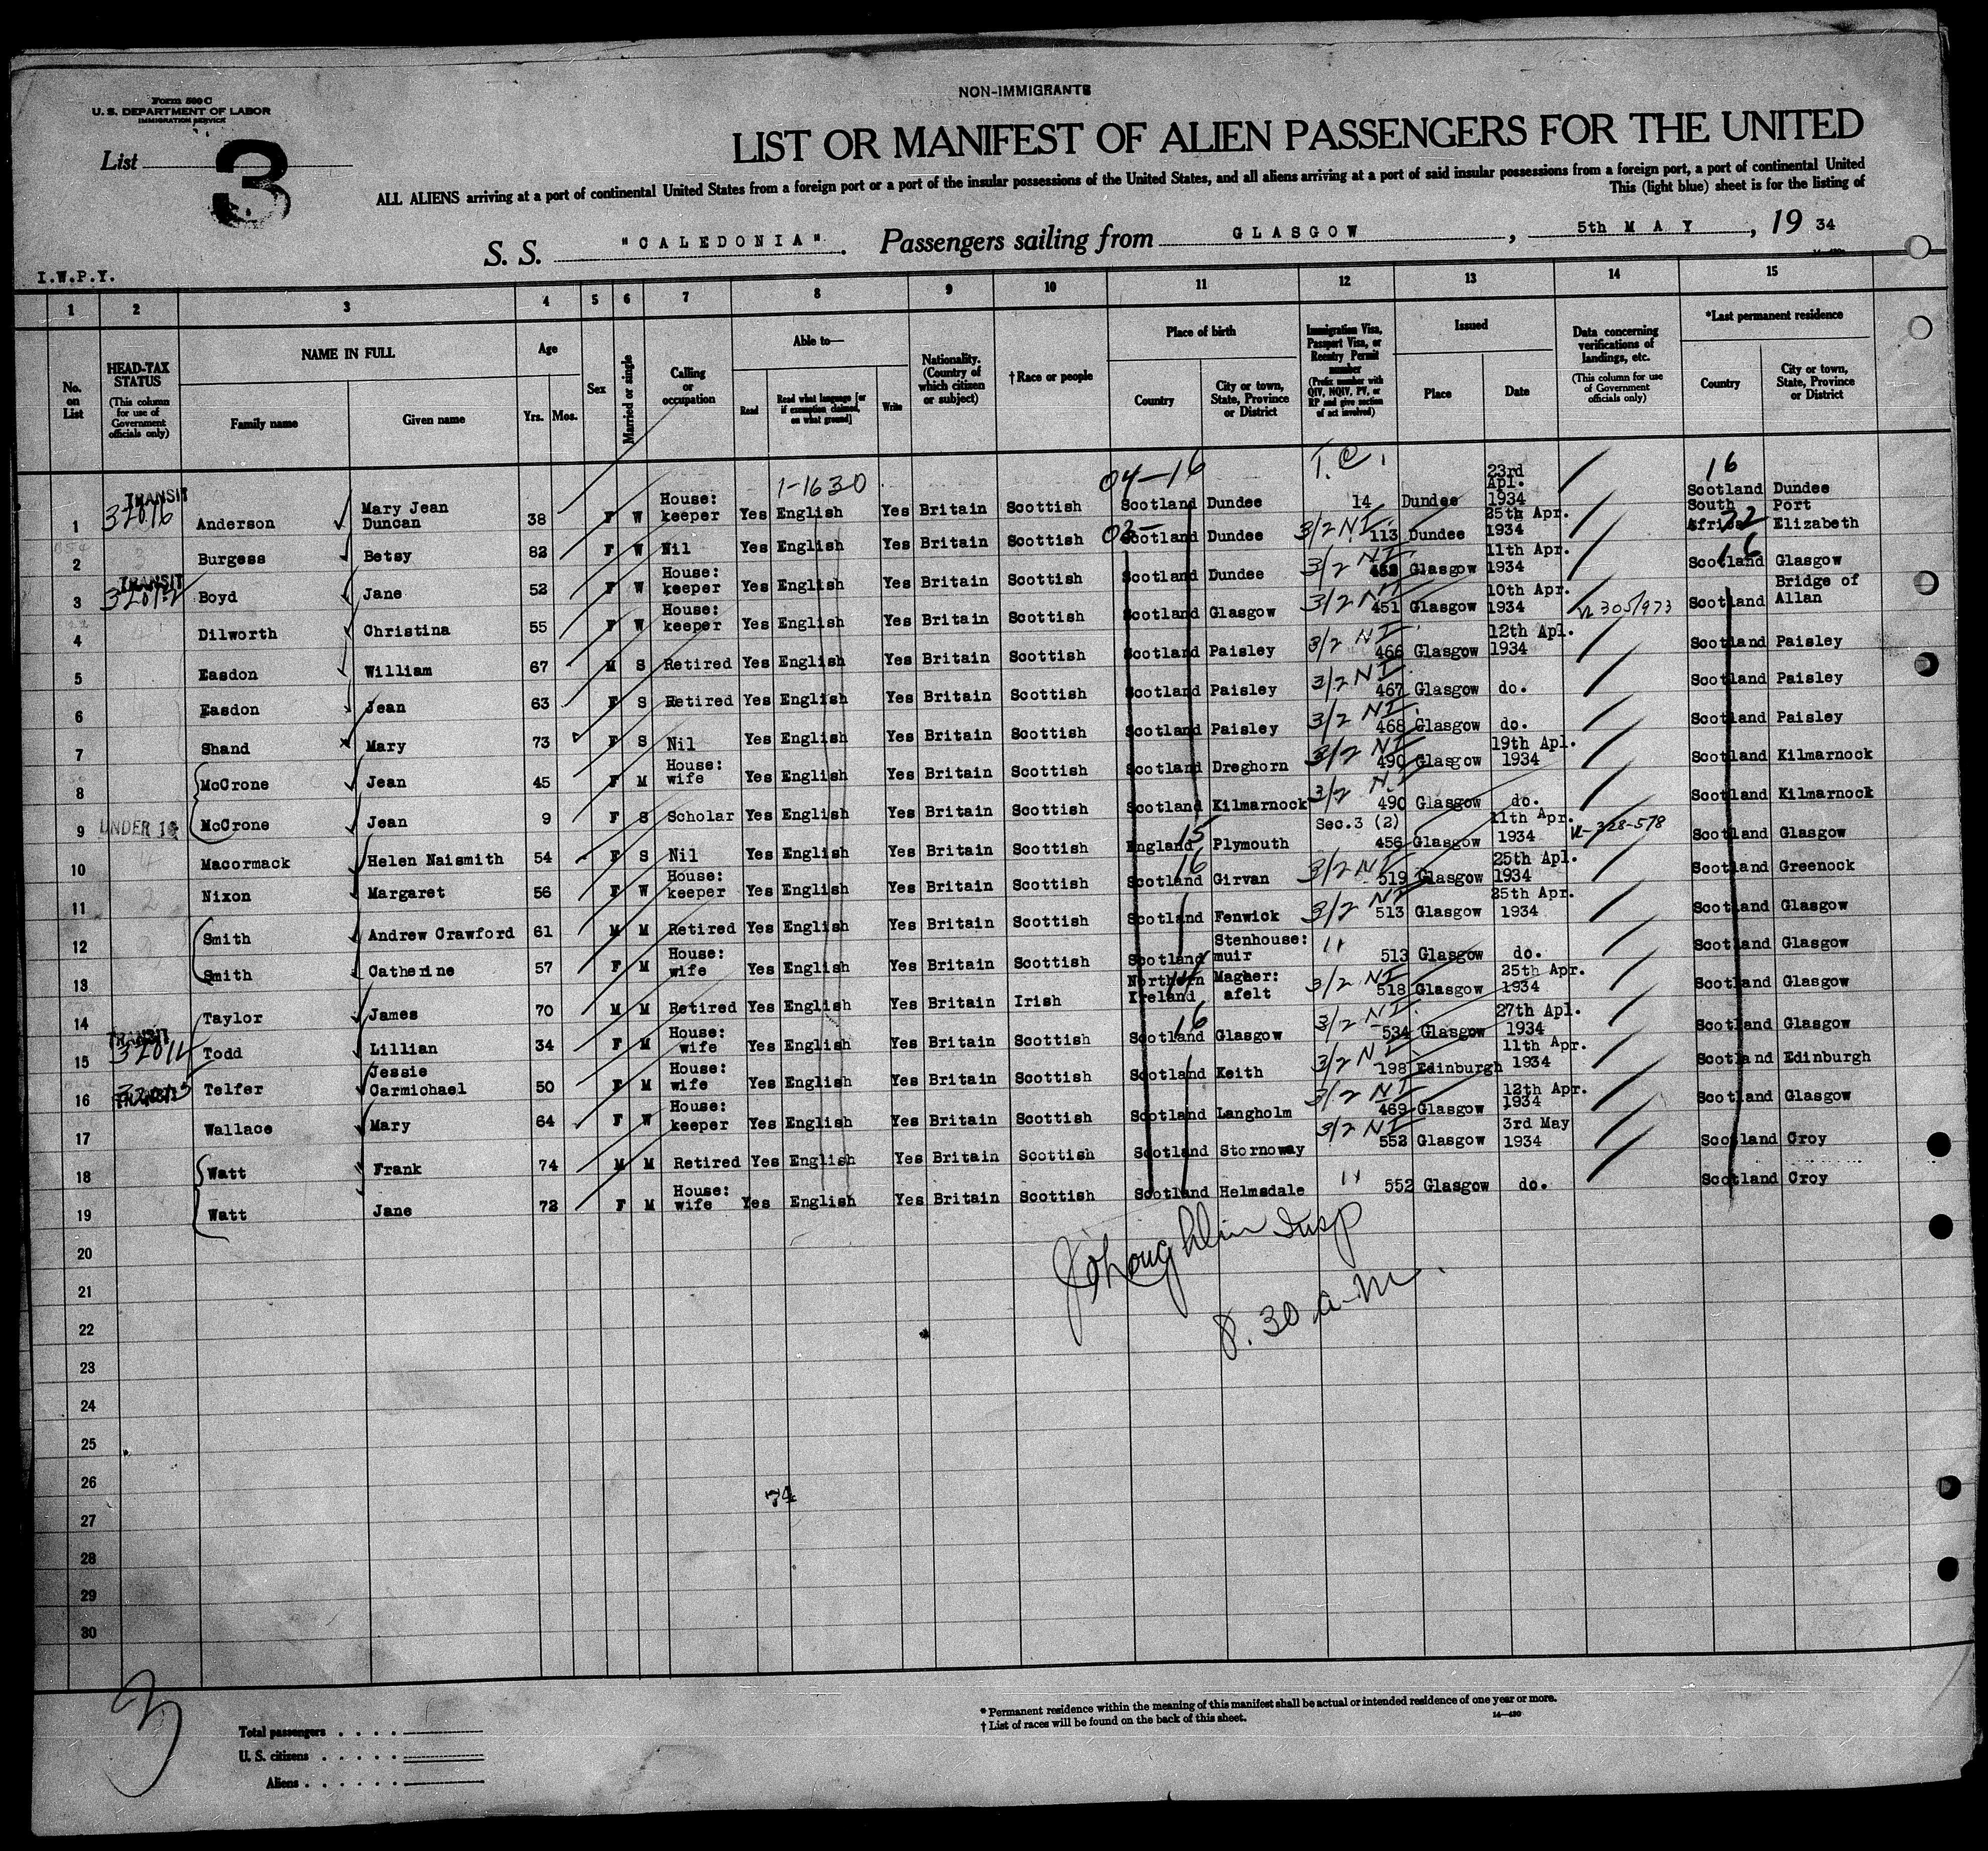 NON-IMMIGRANTS
Form 500 C
U. S. DEPARTMENT OF LABOR
IMMIGRATION SERVICE
List 3
LIST OR MANIFEST OF ALIEN PASSENGERS FOR THE UNITED
ALL ALIENS arriving at a port of continental United States from a foreign port or a port of the insular possessions of the United States, and all aliens arriving at a port of said insular possessions from a foreign port, a part of continental United
This (light blue) sheet is for the listing of
S. S. "CALEDONIA". Passengers sailing from GLASGOW, 5th MAY, 19 34
I.W.P.Y.
1 2 3 4 5 6 7 8 9 10 11 12 13 14 15
No. on List
HEAD-TAX STATUS (This column for use of Government officials only)
NAME IN FULL
Family name Given name
Age
Yrs. Mos.
Sex
Married or single
Calling or occupation
Able to—
Read Read what language [or if exemption claimed, on what ground] Write
Nationality. (Country of which citizen or subject)
†Race or people
Place of birth
Country City or town, State, Province or District
Immigration Visa, Passport Visa, or Reentry Permit number (Prefix number with QIV, NQIV, PV, or RP and give section of act involved)
Issued
Place Date
Data concerning verifications of landings, etc. (This column for use of Government officials only)
*Last permanent residence
Country City or town, State, Province or District
1-1630 04-16 T.C. 16
1 TRANSIT 32076 Anderson Mary Jean Duncan 38 F W House: keeper Yes English Yes Britain Scottish Scotland Dundee 14 Dundee 23rd Apl. 1934 Scotland Dundee
2 Burgess Betsy 82 F W Nil Yes English Yes Britain Scottish Scotland Dundee 3/2 NI. 113 Dundee 25th Apr. 1934 South Africa 22 Port Elizabeth
3 TRANSIT Boyd Jane 52 F W House: keeper Yes English Yes Britain Scottish Scotland Dundee 3/2 NI. Glasgow 11th Apr. 1934 Scotland 16 Glasgow
4 Dilworth Christina 55 F W House: keeper Yes English Yes Britain Scottish Scotland Glasgow 3/2 NI 451 Glasgow 10th Apr. 1934 VL 305/973 Scotland Bridge of Allan
5 Easdon William 67 M S Retired Yes English Yes Britain Scottish Scotland Paisley 3/2 NI. 466 Glasgow 12th Apl. 1934 Scotland Paisley
6 Easdon Jean 63 F S Retired Yes English Yes Britain Scottish Scotland Paisley 3/2 NI. 467 Glasgow do. Scotland Paisley
7 Shand Mary 73 F S Nil Yes English Yes Britain Scottish Scotland Paisley 3/2 NI. 468 Glasgow do. Scotland Paisley
8 McCrone Jean 45 F M House: wife Yes English Yes Britain Scottish Scotland Dreghorn 3/2 NI 490 Glasgow 19th Apl. 1934 Scotland Kilmarnock
9 UNDER 16 McCrone Jean 9 F S Scholar Yes English Yes Britain Scottish Scotland Kilmarnock 3/2 N.I 490 Glasgow do. Scotland Kilmarnock
10 Macormack Helen Naismith 54 F S Nil Yes English Yes Britain Scottish England 15 Plymouth Sec.3 (2) 456 Glasgow 11th Apr. 1934 VL-328-578 Scotland Glasgow
11 Nixon Margaret 56 F W House: keeper Yes English Yes Britain Scottish Scotland 16 Girvan 3/2 NI 519 Glasgow 25th Apl. 1934 Scotland Greenock
12 Smith Andrew Crawford 61 M M Retired Yes English Yes Britain Scottish Scotland Fenwick 3/2 NI 513 Glasgow 25th Apr. 1934 Scotland Glasgow
13 Smith Catherine 57 F M House: wife Yes English Yes Britain Scottish Scotland Stenhouse: muir " 513 Glasgow do. Scotland Glasgow
14 Taylor James 70 M M Retired Yes English Yes Britain Irish Northern Ireland 14 Magher: afelt 3/2 NI 518 Glasgow 25th Apr. 1934 Scotland Glasgow
15 TRANSIT Todd Lillian 34 F M House: wife Yes English Yes Britain Scottish Scotland 16 Glasgow 3/2 NI. 534 Glasgow 27th Apl. 1934 Scotland Glasgow
16 TRANSIT Telfer Jessie Carmichael 50 F M House: wife Yes English Yes Britain Scottish Scotland Keith 3/2 NI 198 Edinburgh 11th Apr. 1934 Scotland Edinburgh
17 Wallace Mary 64 F W House: keeper Yes English Yes Britain Scottish Scotland Langholm 3/2 NI 469 Glasgow 12th Apr. 1934 Scotland Glasgow
18 Watt Frank 74 M M Retired Yes English Yes Britain Scottish Scotland Stornoway 3/2 NI 552 Glasgow 3rd May 1934 Scotland Croy
19 Watt Jane 72 F M House: wife Yes English Yes Britain Scottish Scotland Helmsdale " 552 Glasgow do. Scotland Croy
20
21
22
23
24
25
26
27
28
29
30
Insp
8.30 a-m.
74
3
Total passengers
U. S. citizens
Aliens
* Permanent residence within the meaning of this manifest shall be actual or intended residence of one year or more.
† List of races will be found on the back of this sheet.
14—430